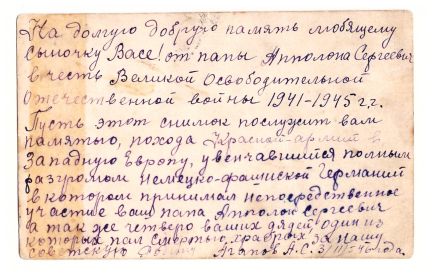 На долгую добрую память любящему
сыночку Васе! от папы Апполона Сергеевич
в честь Великой Освободительной
Отечественной войны 1941-1945 г.г.
Пусть этот снимок послужит вам
памятью, похода Красной-армии в
Западную Европу, увенчавшийся полным
разгромом немецко-фашиской Германией
в котором принимал непосредственное
участие ваш папа Апполон Сергеевич
а так же четверо ваших дядей один из
которых пал смертью, храбрых, за нашу
советскую Родину Агапов А.С.